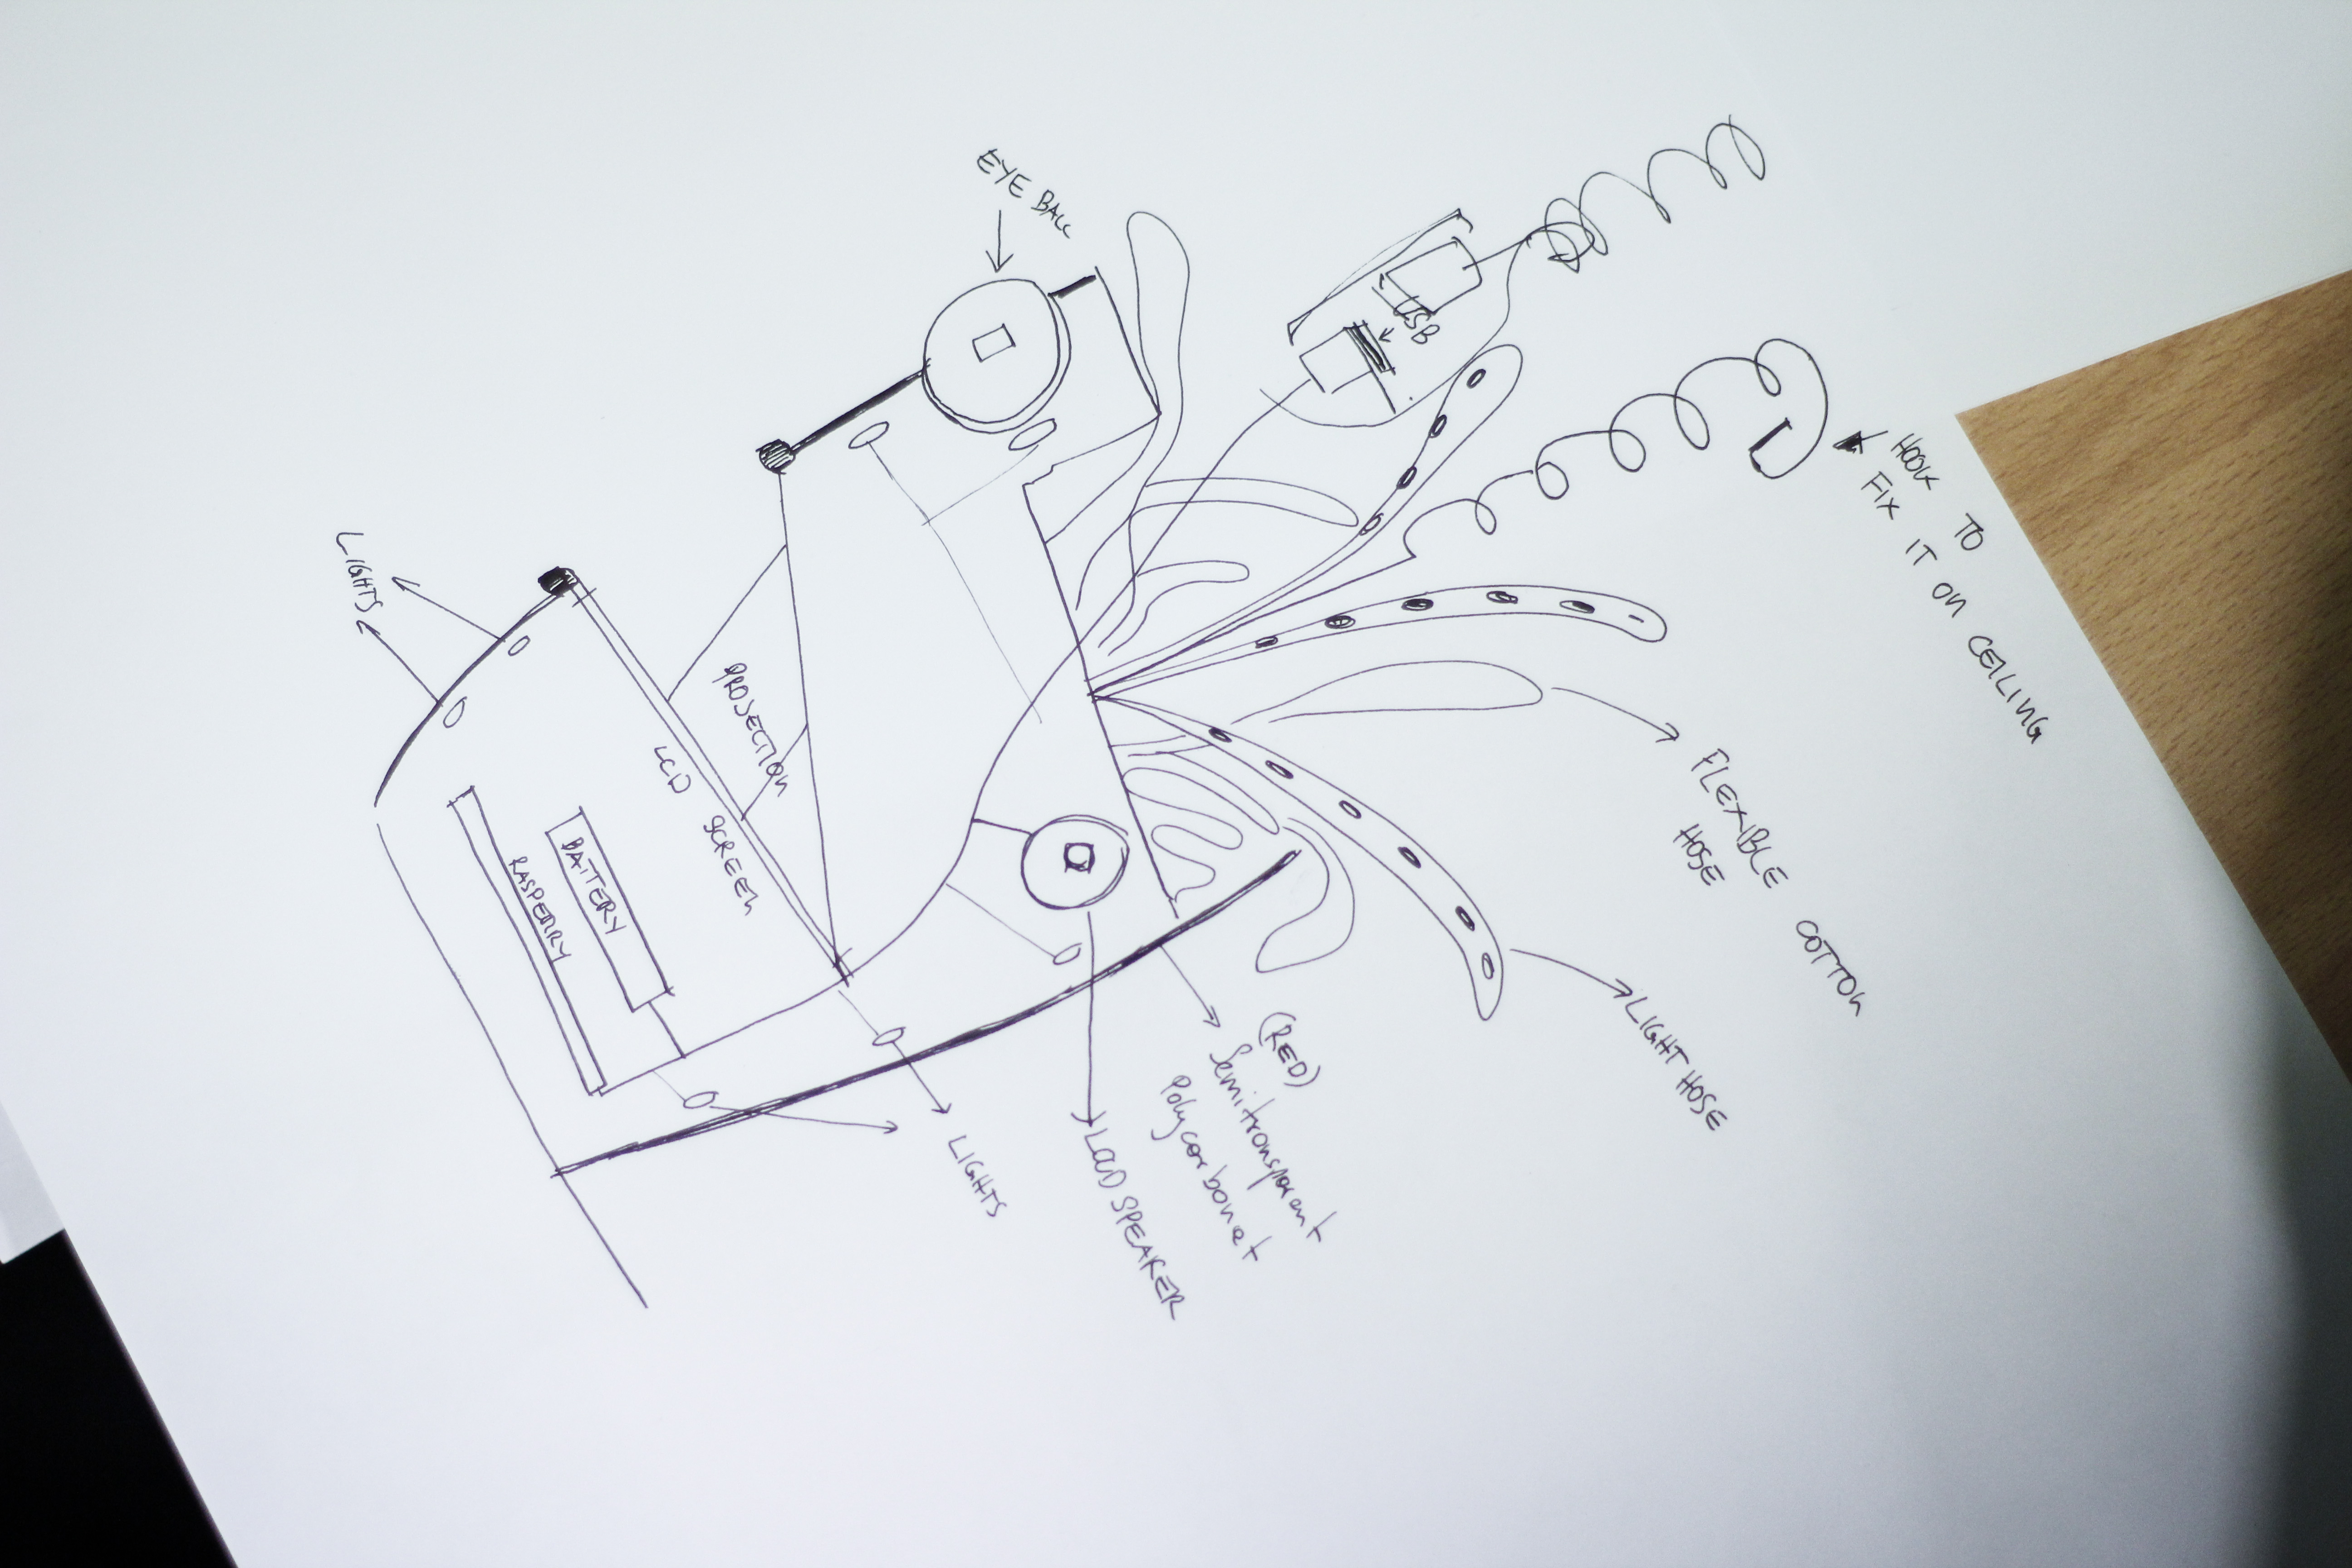 EYE BALL
USB
HOOK TO
FIX IT ON CEILING
LIGHTS
PROJECTION
LCD SCREEN
BATTERY
RASPERRY
FLEXIBLE COTTON
HOSE
LIGHT HOSE
(RED)
Semitransparent
Polycarbonat
LOUD SPEAKER
LIGHTS